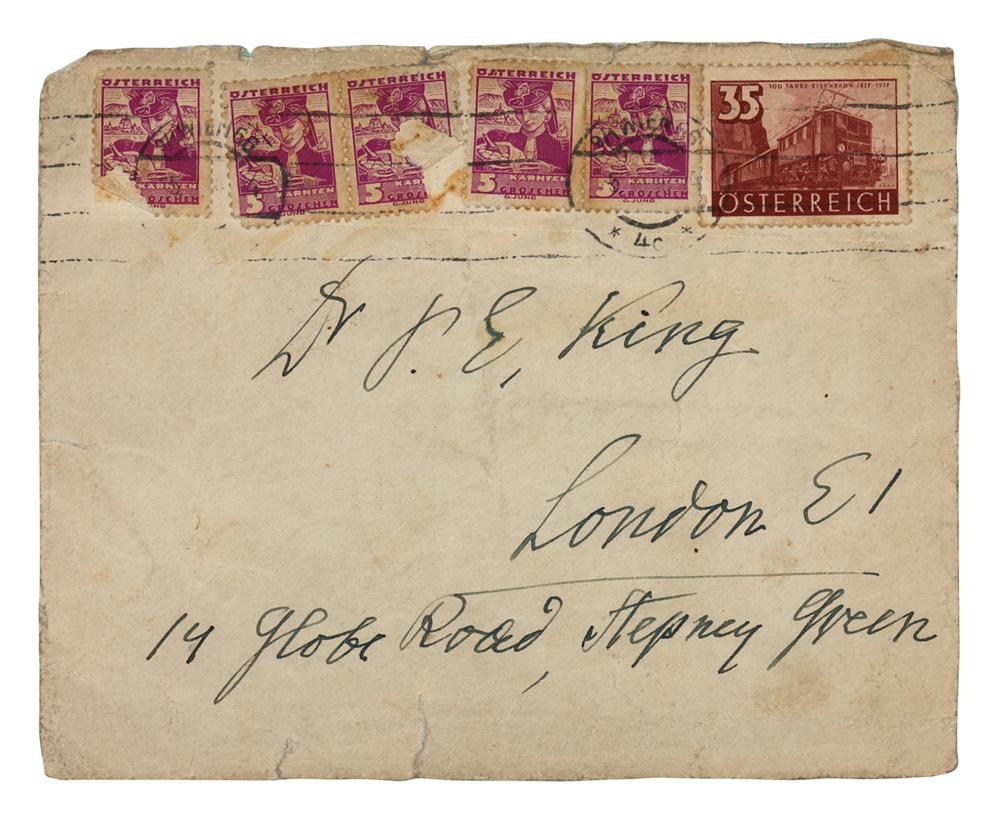 ÖSTERREICH
KÄRNTEN
GROSCHEN
ÖSTERREICH
KÄRNTEN
5 GROSCHEN
G.JUNG
ÖSTERREICH
KÄRNTEN
5 GROSCHEN
G.JUNG
ÖSTERREICH
KÄRNTEN
5 GROSCHEN
G.JUNG
ÖSTERREICH
KÄRNTEN
5 GROSCHEN
G.JUNG
35
100 JAHRE EISENBAHN 1837-1937
ÖSTERREICH
* 4c *
Dr J. E, King
London E1
14 Globe Road, Stepney Green